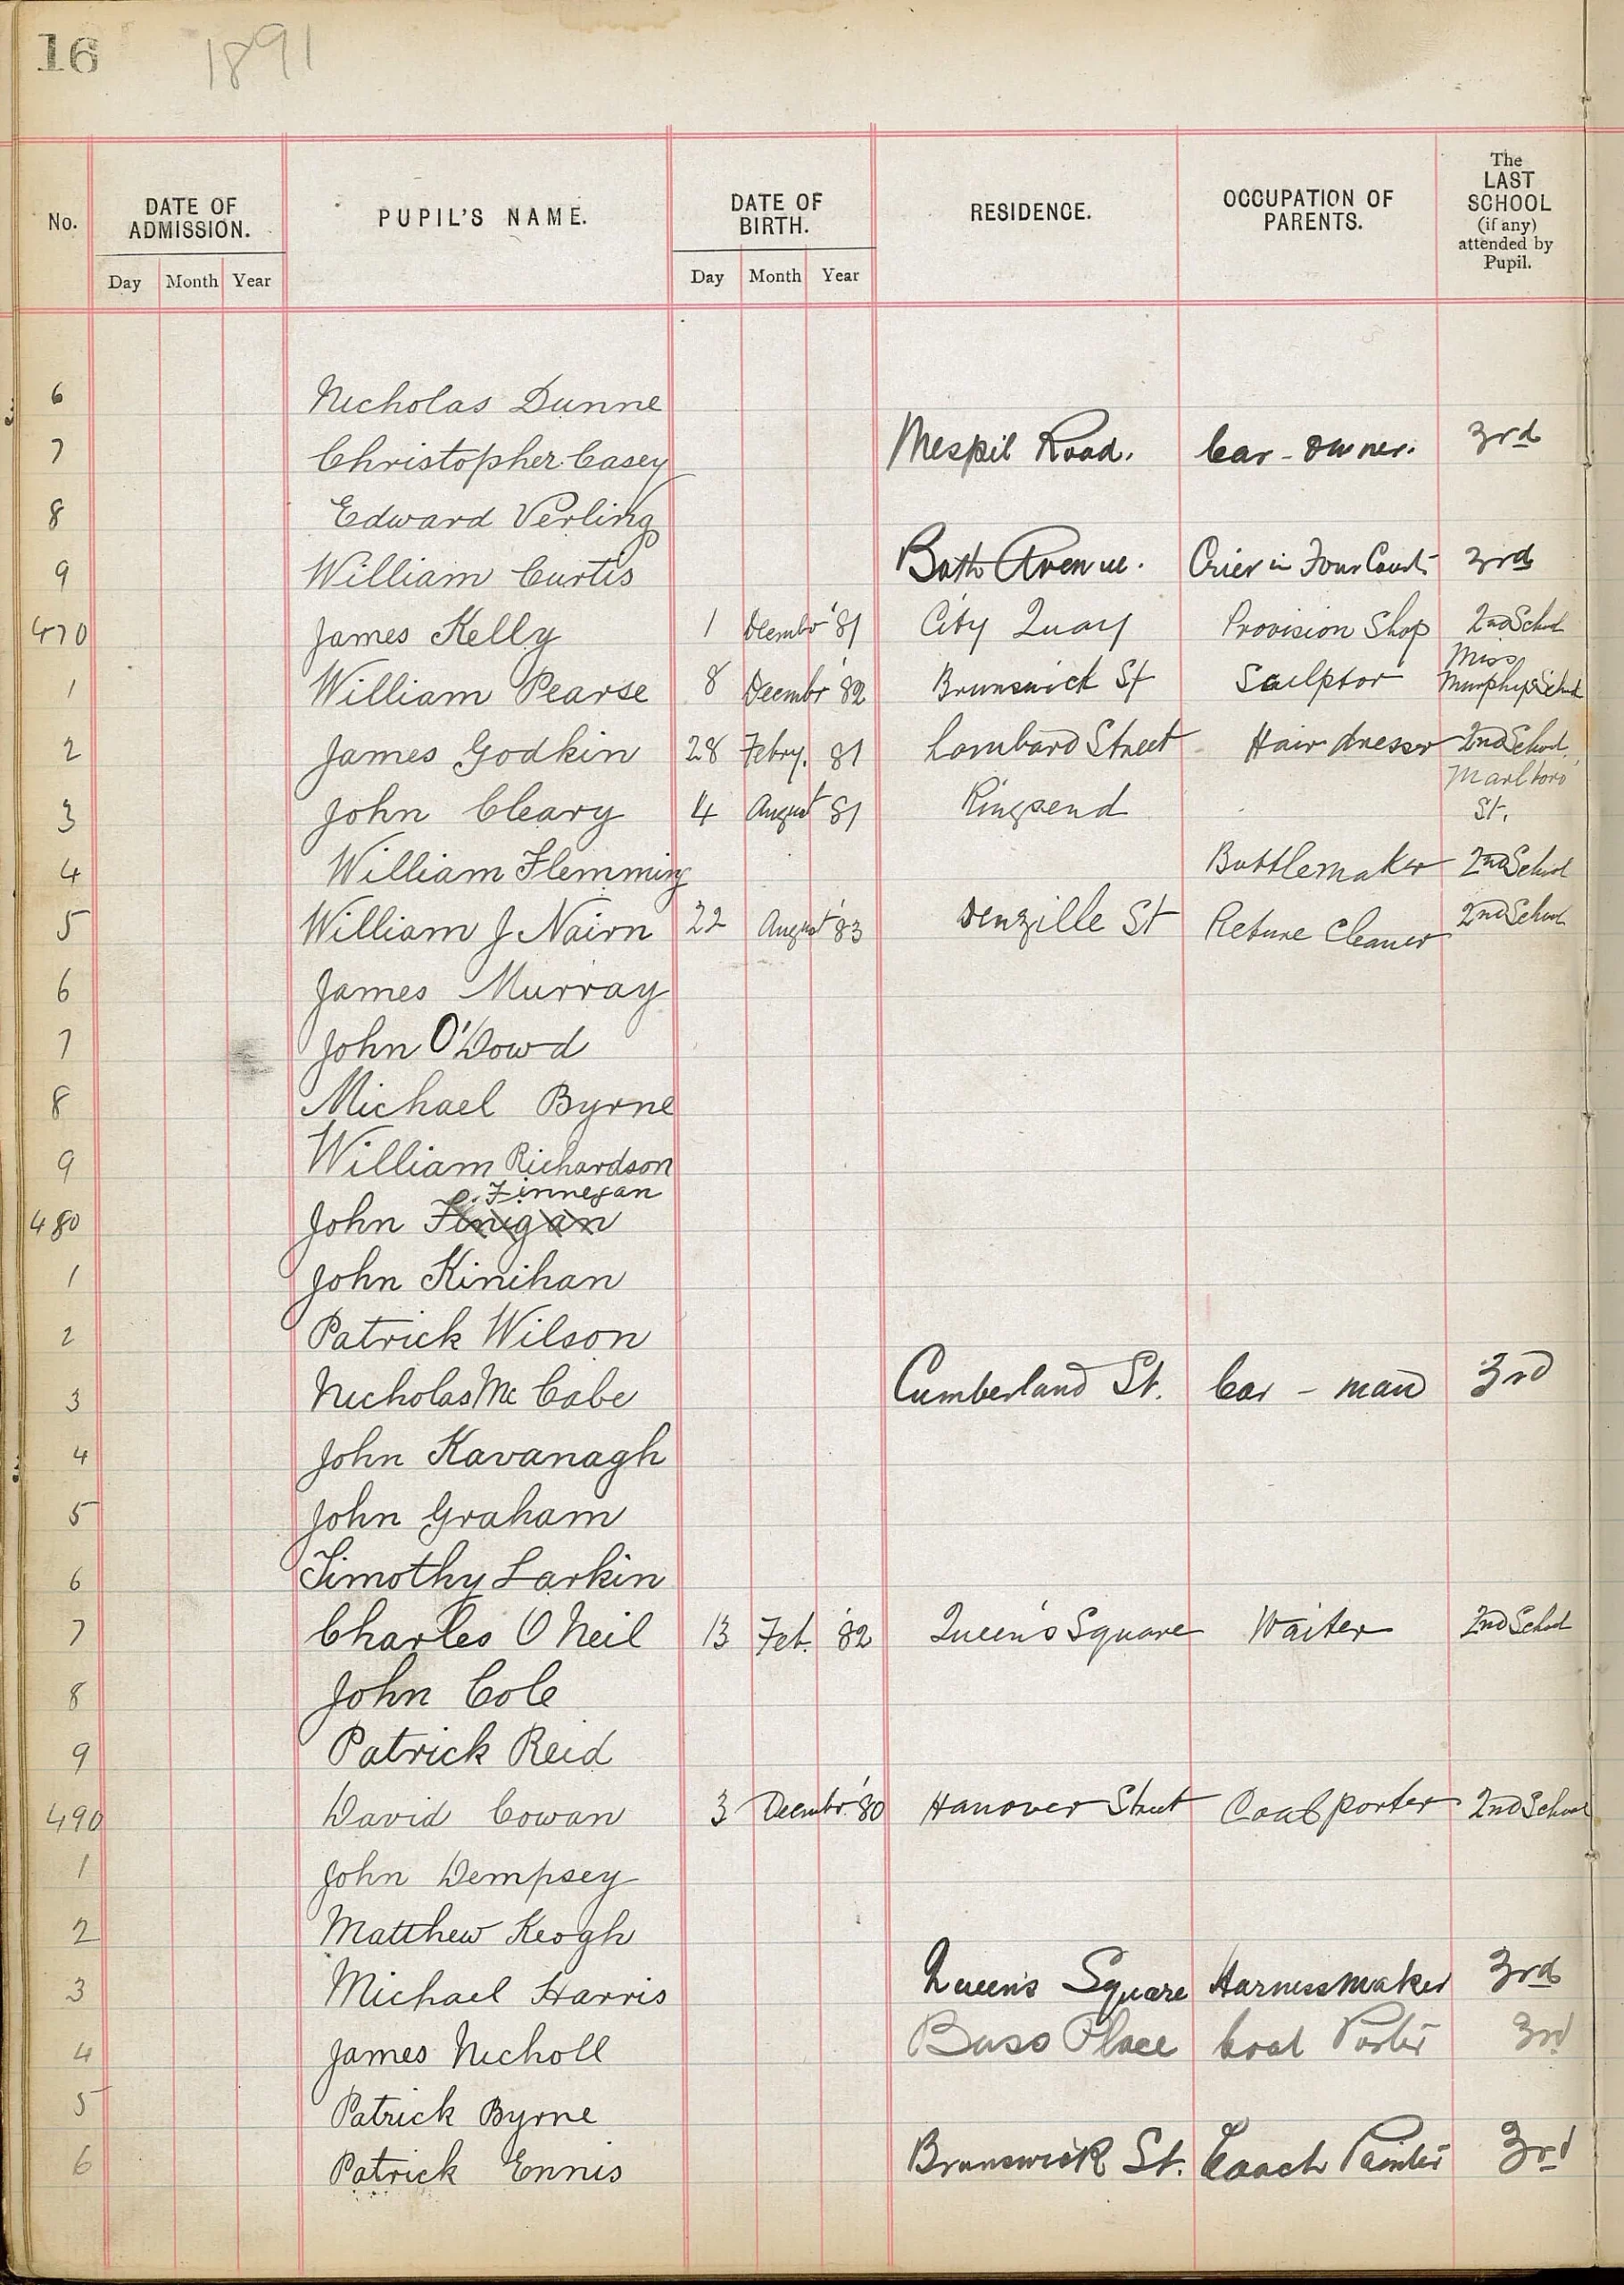 16 1891
No. DATE OF ADMISSION. PUPIL'S NAME. DATE OF BIRTH. RESIDENCE. OCCUPATION OF PARENTS. The LAST SCHOOL (if any) attended by Pupil.
Day Month Year Day Month Year
6 Nicholas Dunne
7 Christopher Casey Mespil Road. Car-owner. 3rd
8 Edward Verling
9 William Curtis Bath Avenue. Crier in Four Courts 3rd
470 James Kelly 1 Decembr '81 City Quay Provision Shop 2nd School
1 William Pearse 8 Decembr '82 Brunswick St Sculptor Miss Murphy's School
2 James Godkin 28 Febry. 81 Lombard Street Hairdresser 2nd School
3 John Cleary 4 August 81 Ringsend Marlboro' St.
4 William Flemming Bottlemaker 2nd School
5 William J Nairn 22 August '83 Denzille St Cleaner 2nd School
6 James Murray
7 John O'Dowd
8 Michael Byrne
9 William Richardson
Finnegan
480 John Finigan
1 John Kinihan
2 Patrick Wilson
3 Nicholas Mc Cabe Cumberland St. Car-man 3rd
4 John Kavanagh
5 John Graham
6 Timothy Larkin
7 Charles O Neil 13 Feb. '82 Queen's Square Waiter 2nd School
8 John Cole
9 Patrick Reid
490 David Cowan 3 Decembr. '80 Hanover Street Coalporter 2nd School
1 John Dempsey
2 Matthew Keogh
3 Michael Harris Queen's Square Harnessmaker 3rd
4 James Nicholl Bass Place Coal Porter 3rd
5 Patrick Byrne
6 Patrick Ennis Brunswick St. Coach Painter 3rd